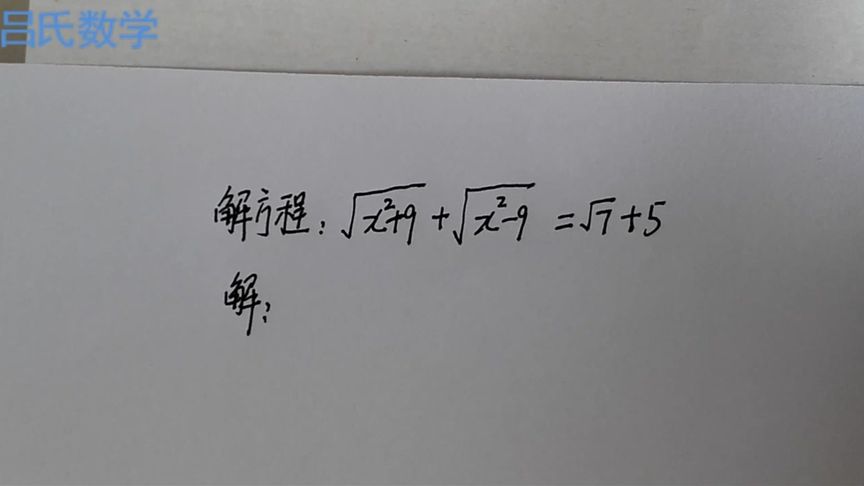 吕氏数学
解方程：√(x²+9) + √(x²-9) = √7+5
解：